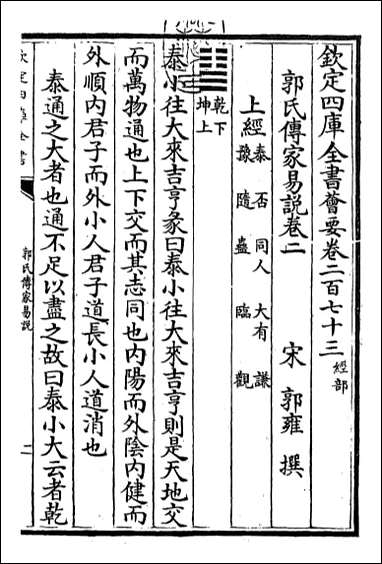 欽定四庫全書薈要卷二百七十三 經部
郭氏傳家易說卷二
宋 郭雍 撰
上經 泰 否 同人 大有 謙
豫 隨 蠱 臨 觀
䷊ 乾下
坤上
泰小往大來吉亨彖曰泰小往大來吉亨則是天地交
而萬物通也上下交而其志同也內陽而外陰內健而
外順內君子而外小人君子道長小人道消也
泰通之大者也通不足以盡之故曰泰小大云者乾
欽定四庫全書
郭氏傳家易說